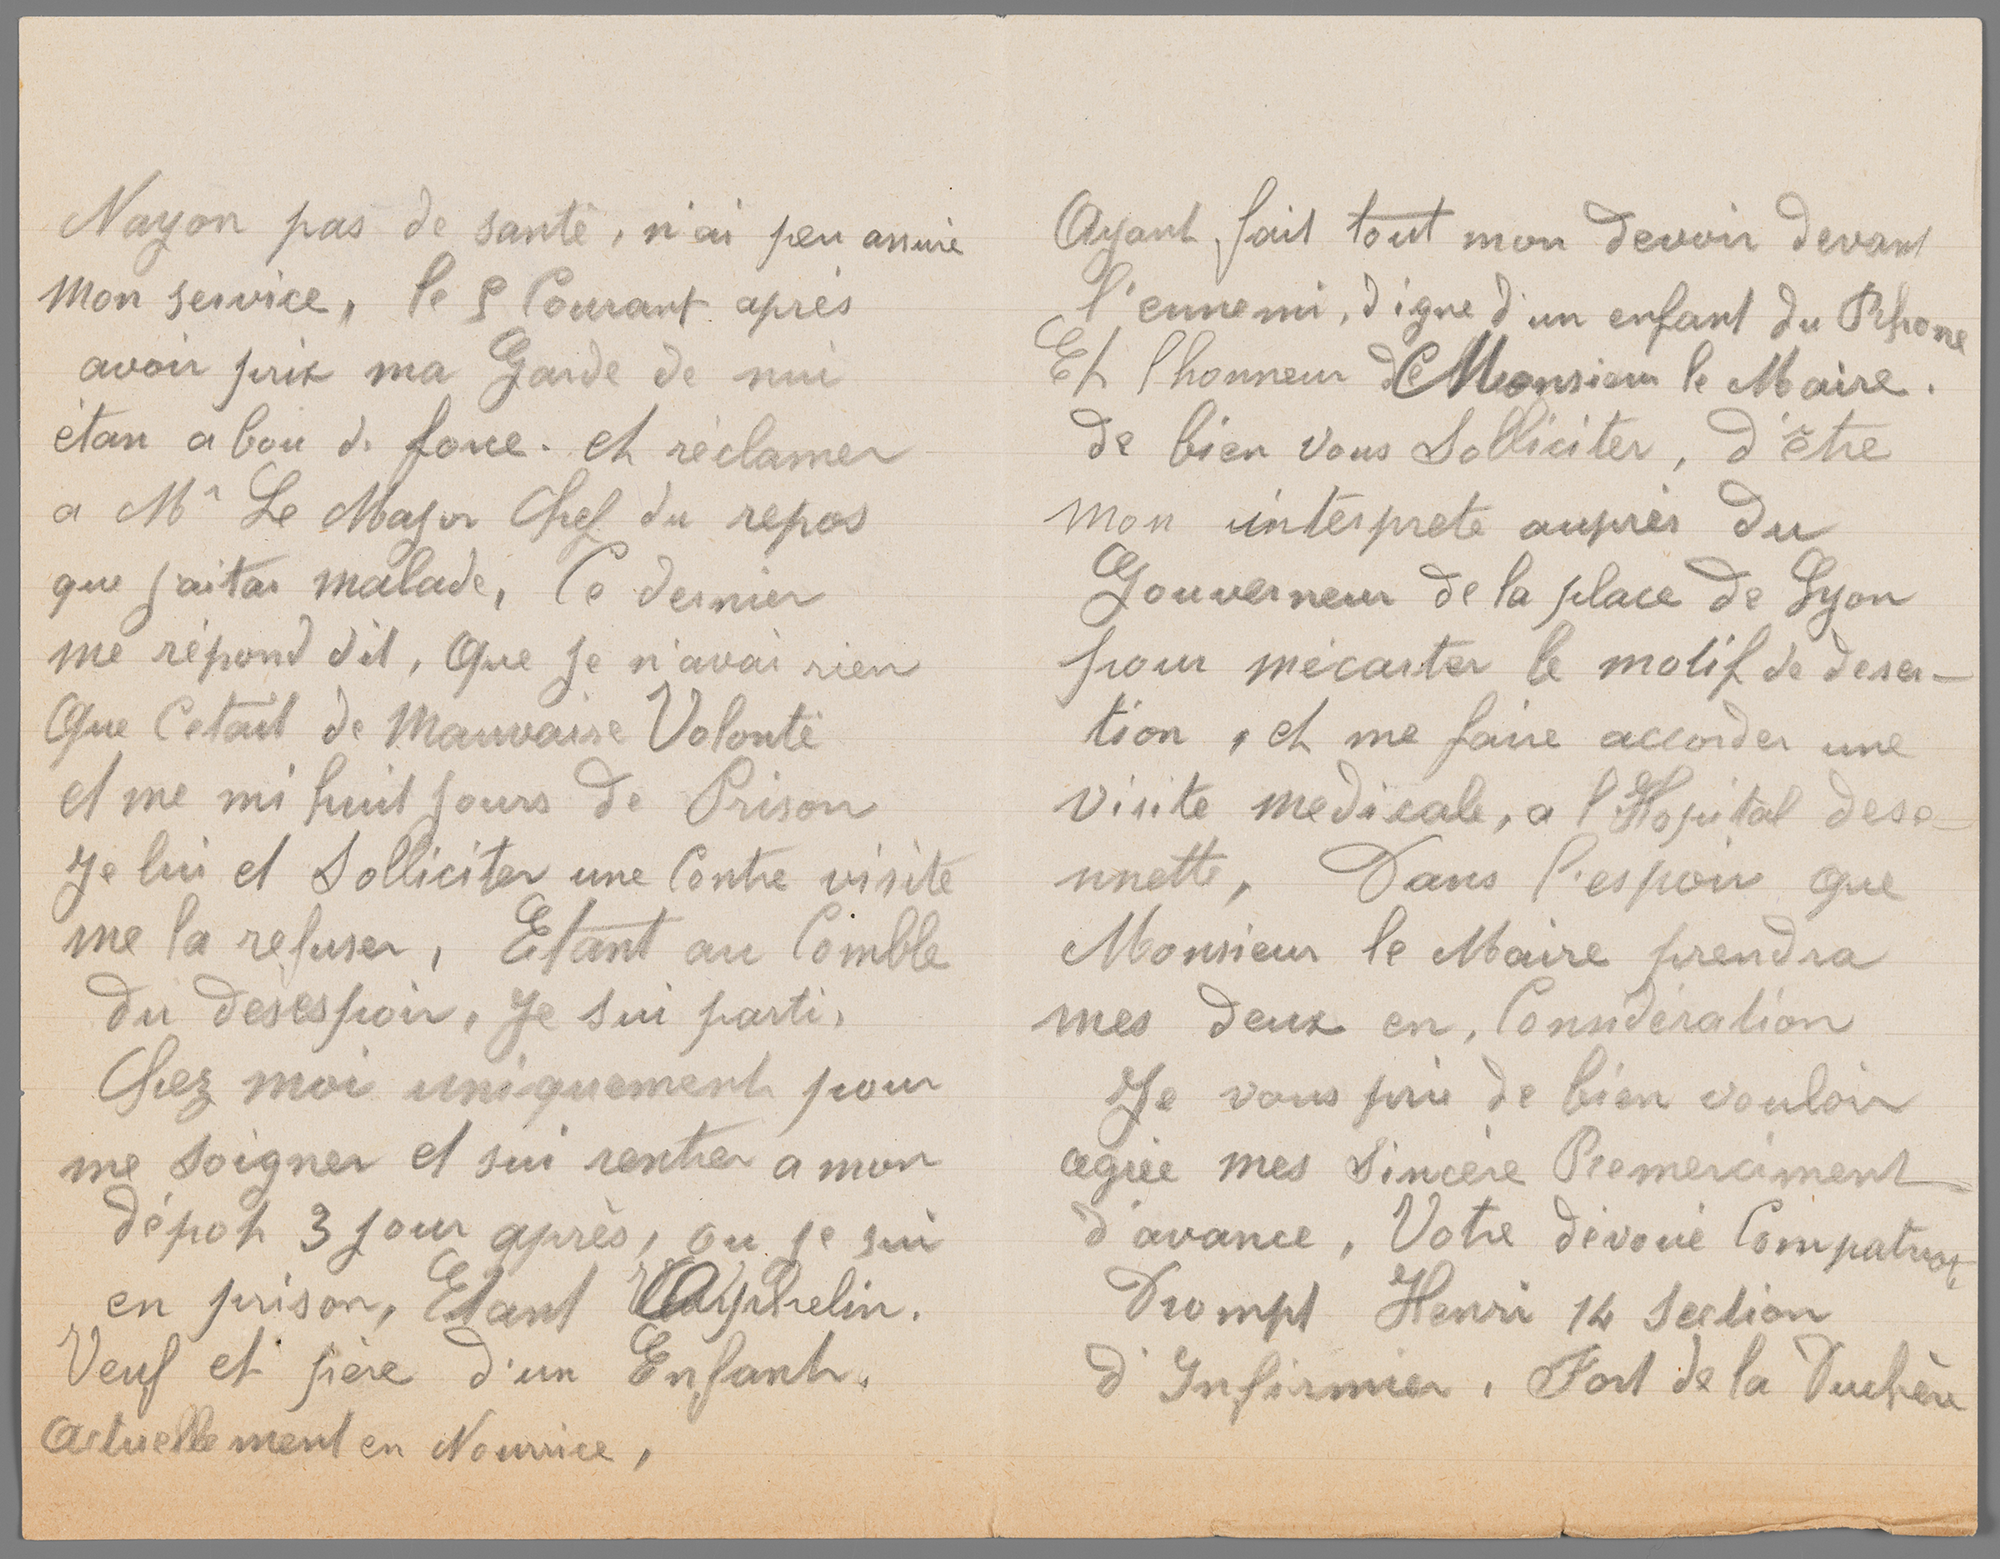 Nayon pas de santé, n'ai peu assuré
mon service, le 5 Courant après
avoir prix ma Garde de nui
étan a bou de force. et réclamer
a Mr Le Major Chef du repos
que jaitai malade, Ce dernier
me répond dit, que je n'avai rien
que Cetait de Mauvaise Volonté
et me mi huit jours de Prison
Je lui et Solliciter une Contre visite
me la refuser, Etant au Comble
du desespoir, Je sui parti,
Chez moi uniquement pour
me soigner et sui rentrer a mon
dépot 3 jour après, ou je sui
en prison, Etant Orphelin.
Veuf et père d'un Enfant,
Actuellement en Nourrice,
Ayant fait tout mon devoir devant
l'ennemi, digne d'un enfant du Rhone
Et l'honneur de Monsieur le Maire.
de bien vous Solliciter, d'être
mon interprete auprès du
Gouverneur de la place de Lyon
pour mécarter le motif de deser-
tion, et me faire accorder une
visite medicale, a l'Hopital dese-
nnette, Dans l'espoir que
Monsieur le Maire prendra
mes deux en, Considération
Je vous prie de bien vouloir
agrée mes Sincère Remerciment
d'avance, Votre dévoué Compatriot
Drompt Henri 14 Section
d'Infirmier, Fort de la Duchère